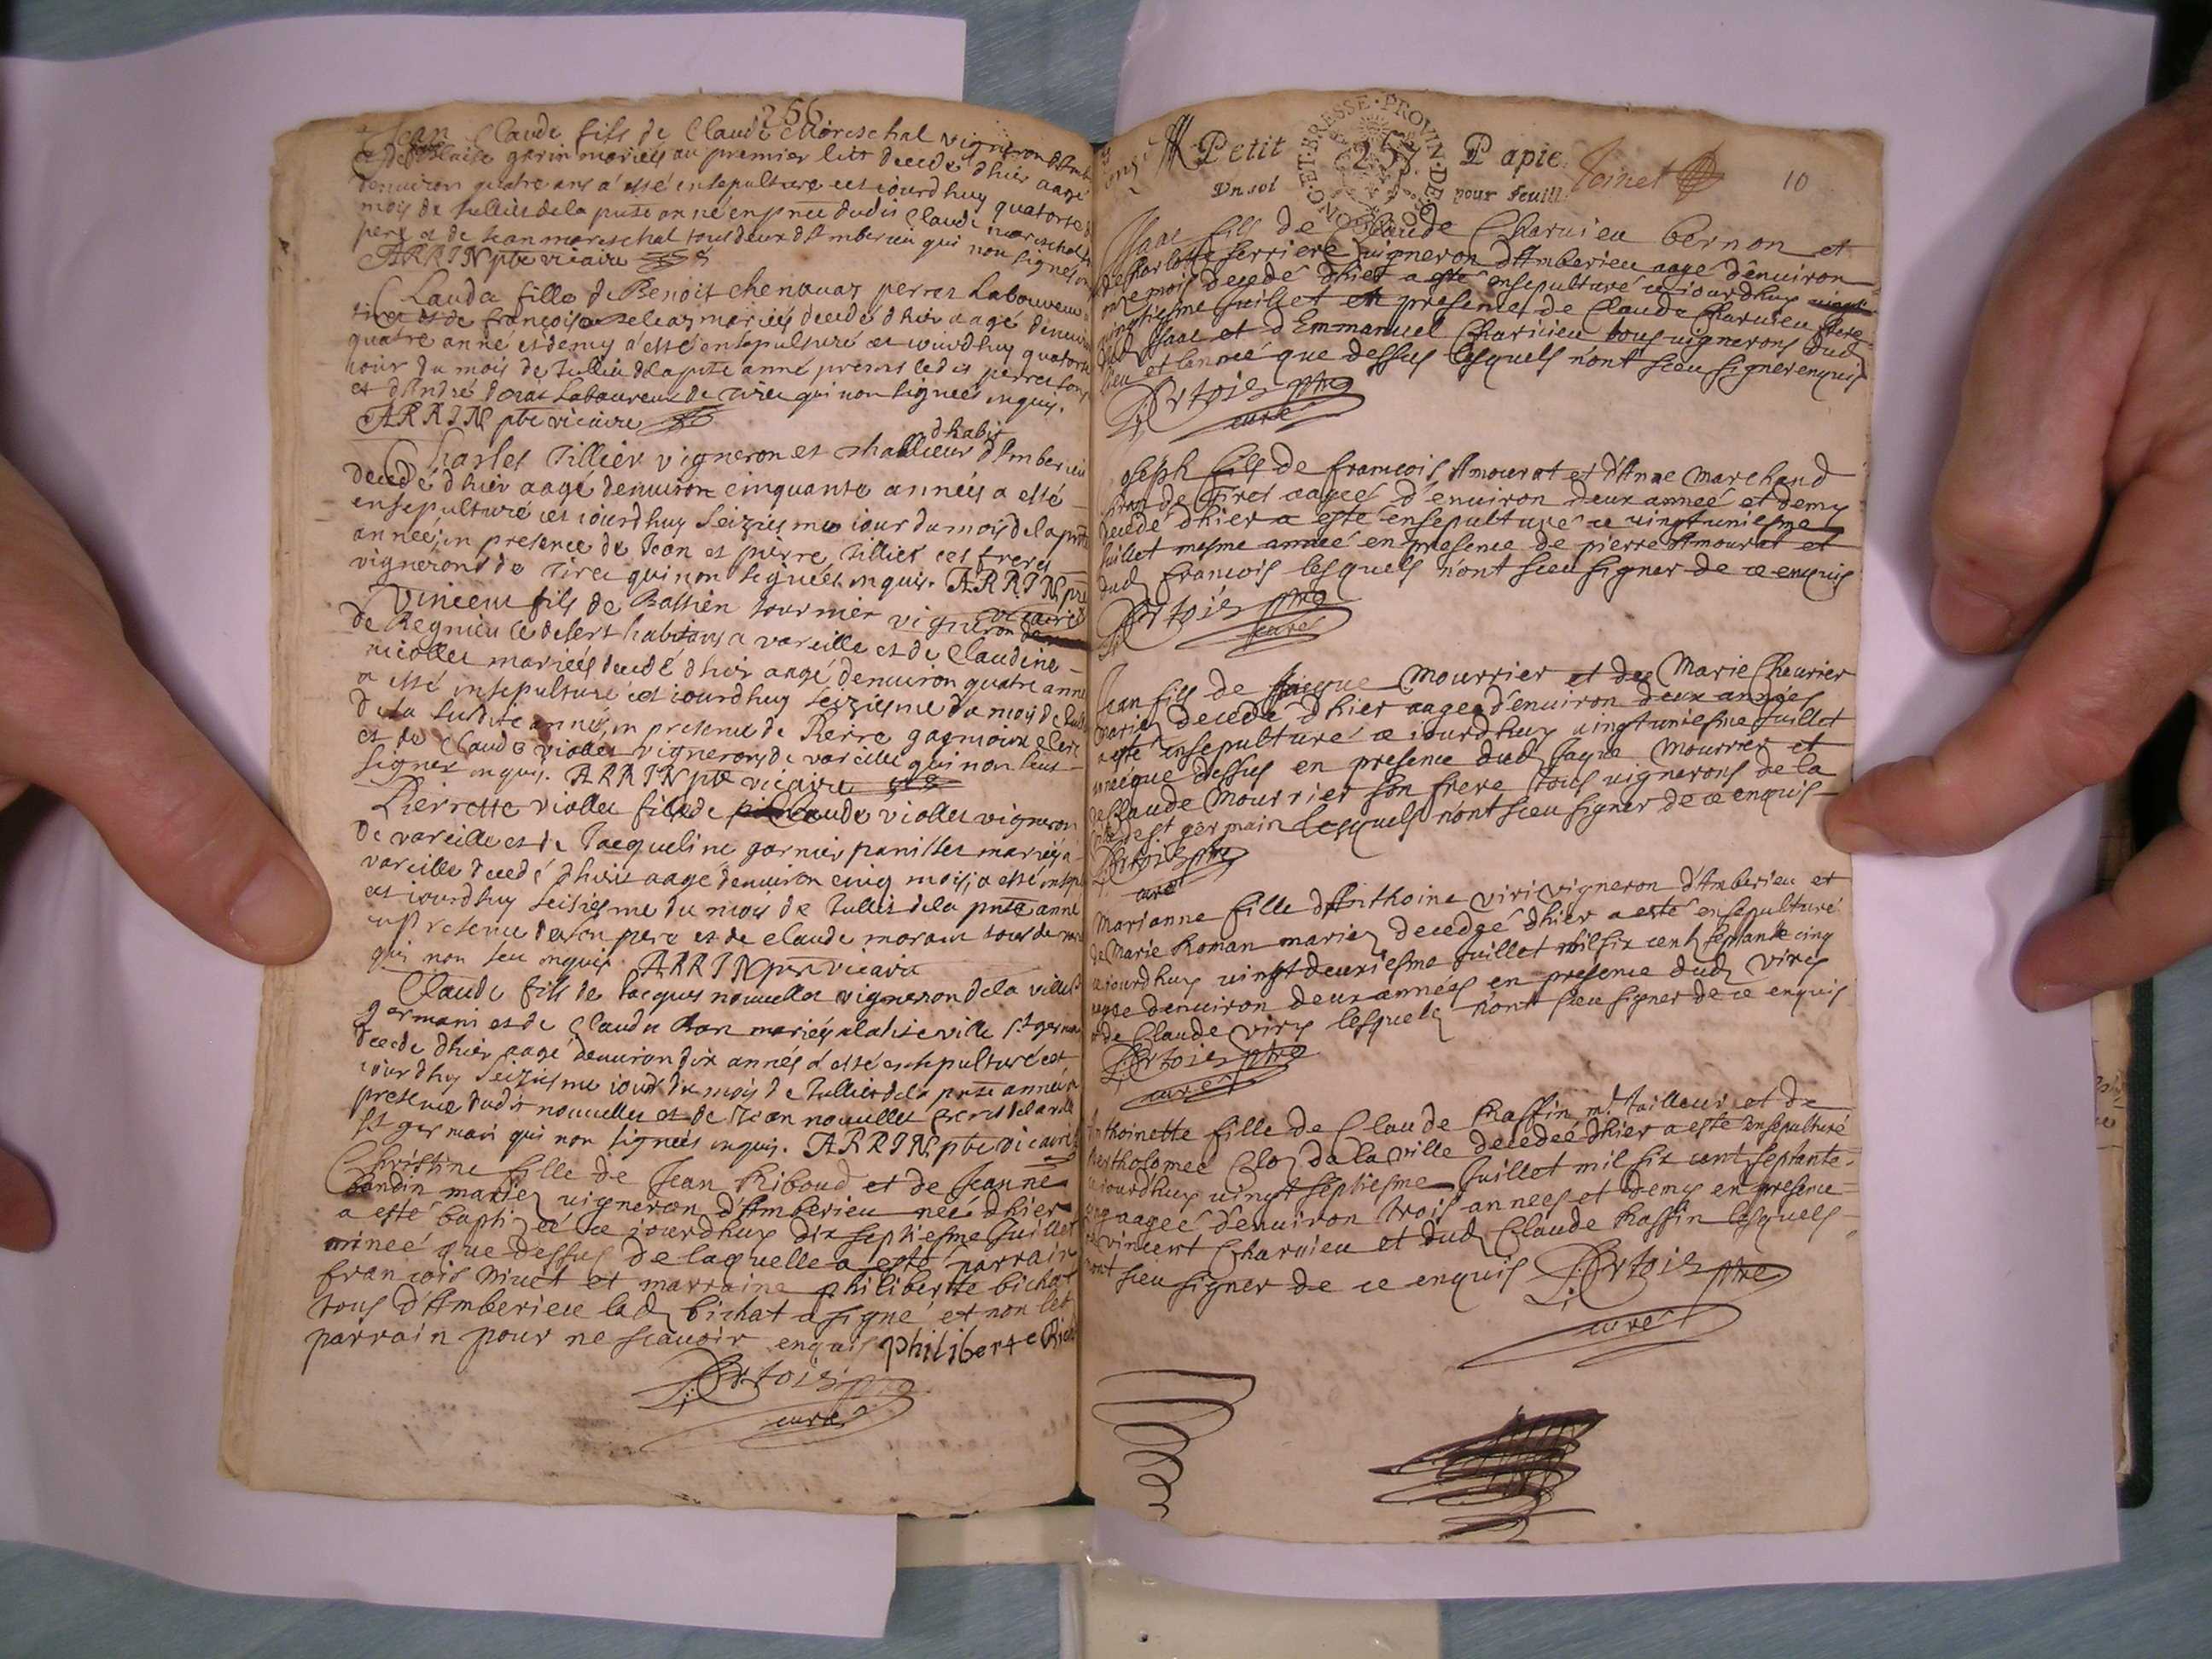 256
Jean Claude fils de Claude Moreschal vigneron
et de Blaise garin mariés au premier lict decede dhier aagé
denuiron quatre ans a esté ensepulturé cet iourdhuy quatorse
mois de Jullier de la pnte année en pnce dudit Claude mareschal
pere et de Jean mareschal tous deux dAmberieu qui non signés
ARRIN pbre vicaire
Clauda fille de Benoit chenauaz perret Laboureur
tiret et de françoise mariés decedé dhier aagé denuiron
quatre anné et demy a esté ensepulturé cet iourdhuy quatorse
iour du mois de Jullier de la pnte anné presens ledit perret
et dAndré Laboureur de tiret qui non signées inquis.
ARRIN pbre vicaire
dhabis
Charles Tillier vigneron et thallieur dAmberieu
decedé dhier aagé denuiron cinquante années a esté
ensepulturé cet iourdhuy seiziesme iour du mois de la pnte
année, en presence de Jean et pierre Tillier ces freres
vignerons de Tiret qui non signées inquis. ARRIN pbre
vicaire
Vincent fils de Bastien tournier vigneron
de Regnieu le desert habitans a vareille et de Claudine
niollet mariés decedé dhier aagé denuiron quatre anne
a esté ensepulturé cet iourdhuy seiziesme du mois de
de la susdite année, en presence de Pierre gagnioux clerc
et de Claude viollet vignerons de vareille qui non sceu
signer inquis. ARRIN pbre vicaire
Pierrette viollet fille de Claude viollet vigneron
de vareille et de Jacqueline garnier panillet mariés a
vareille decedé dhier aagé denuiron cinq mois, a esté
cet iourdhuy seiziesme du mois de Jullier de la pnte anné
en presence de son pere et de Claude morain tous de
qui non sceu inquis. ARRIN pbre vicaire
Claude fils de Jacques nouuellet vigneron de la ville St
germain et de Claudie Ran mariés a ladite ville St germain
decede dhier aagé denuiron dix annés a esté ensepulturé cet
iourdhuy seiziesme iour du mois de Jullier de la pnte année en
presence dudit nouuellet et de Jean nouuellet freres de la ville
St germain qui non signées inquis. ARRIN pbre vicaire
Christine fille de Jean Riboud et de Jeanne
bondin mariez vigneron d'Amberieu née dhier
a esté baptizéé ce jourdhuy dix septiesme Juillet
anneé que dessus de laquelle a esté parrain
francois niuet et marraine philiberte bichat
tous d'Amberieu lad bichat a signé et non led
parrain pour ne scauoir enquis philiberte Bichat
Artois ptre
curé
Petit Papie
257
BOVRGONG·ET·BRESSE·PROVIN·DE
Vn sol pour feuill
Joinet
10
Isaac fils de Claude Charuieu bernon et
de Charlotte ferriere vigneron d'Amberieu aagé d'enuiron
onze mois decedé dhier a esté ensepulturé ce iourdhuy
vingtiesme Juillet en presence de Claude Charuieu pere
dud Isaac et d'Emmanuel Charuieu tous vignerons dud
lieu et l'anneé que dessus lesquels n'ont sceu signer enquis
Artois ptre
curé
Joseph fils de francois Amourat et d'Anne Marchand
de Tiret aageé d'enuiron deux anneé et demy
decedé dhier a esté ensepulturé ce vingtuniesme
Juillet mesme anneé en presence de pierre Amourat et
dud francois lesquels n'ont sceu signer de ce enquis
Artois ptre
curé
Jean fils de Jacque Mourrier et de Marie Cheurier
mariez decedé dhier aagé d'enuiron deux années
a esté ensepulturé ce iourdhuy vingtuniesme Juillet
anneé que dessus en presence dud Jaque Mourrier et
de Claude Mourrier son frere tous vignerons de la
ville de St germain lesquels n'ont sceu signer de ce enquis
Artois ptre
curé
Marianne fille d'Anthoine viri vigneron d'Amberieu et
de Marie Roman mariez decedeé dhier a esté ensepulturé
ce iourdhuy vingt deuxiesme Juillet mil six cent septante cinq
aageé denuiron deux années en presence dud viry
et de Claude viry lesquels n'ont sceu signer de ce enquis
Artois ptre
curé
Anthoinette fille de Claude Raffin mr tailleur et de
bertholomeé Cloz de la ville decedeé dhier a esté ensepulturé
ce iourdhuy vingt septiesme Juillet mil six cent septante
cinq aageé d'enuiron trois années et demy en presence
de vincent Charuieu et dud Claude Raffin lesquels
n'ont sceu signer de ce enquis Artois ptre
curé